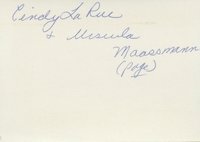 Cindy La Rue
& Ursula
Maassmann
(Page)